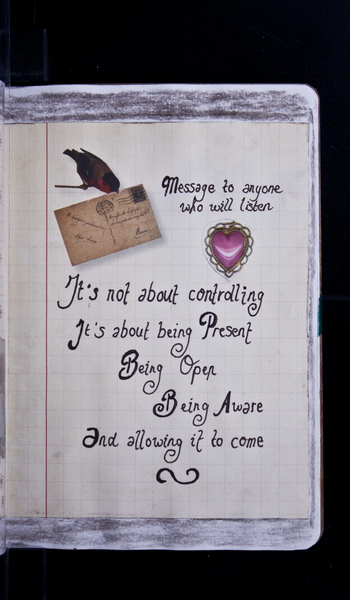 Message to anyone
who will listen
It's not about controlling
It's about being Present
Being Open
Being Aware
And allowing it to come